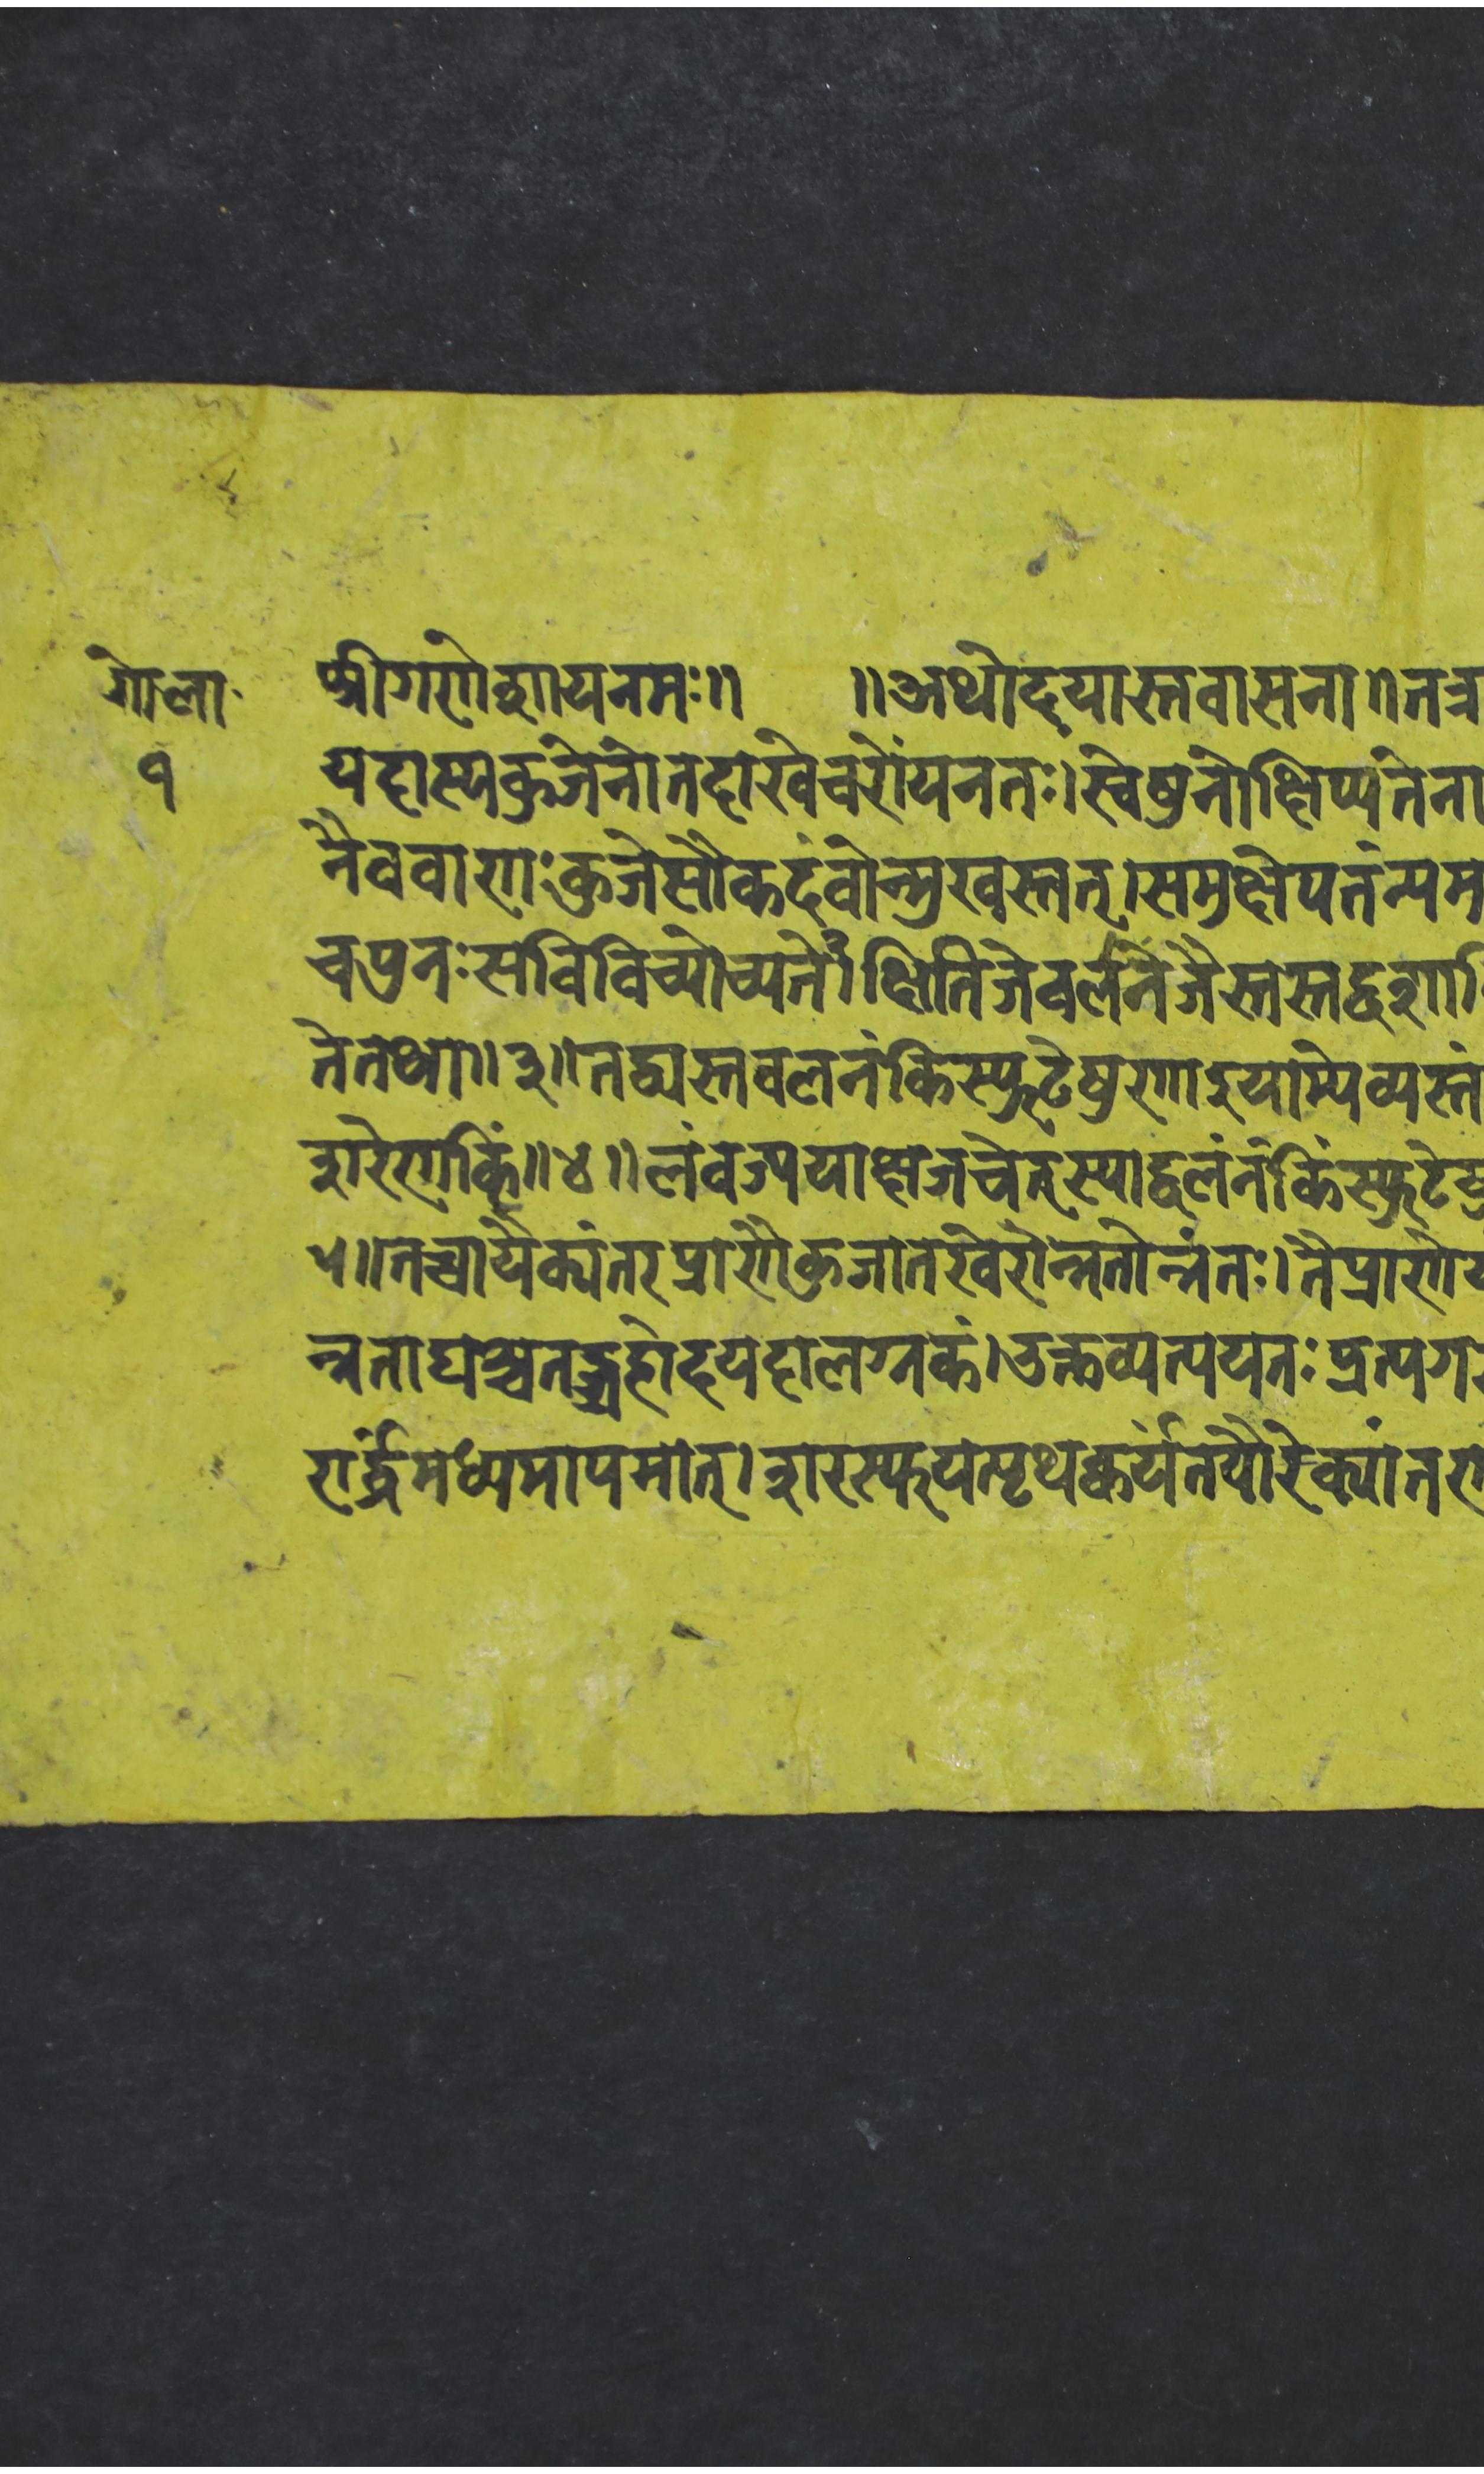 गोला·
१
श्रीगणेशायनमः॥ ॥अथोदयास्तवासना॥तत्र
यदास्यकुजेनोतदाखेचरोंयनतः।स्वेषुनोक्षिप्यतेना
नैववाणःकुजेसौकदंवोन्मुखस्तत्।समुक्षेपतंन्यम
चपुनःसविविच्योच्यते२।क्षितिजेवलनेजैस्तस्तद्वशा
तेतथा॥३॥तद्यस्तवलनंकिस्फुटेषुरणादुयाम्येव्यस्तं
शरेणकिं॥४॥लंवज्ययाक्षजचेत्स्याद्वलंनंकिंस्फुटे
५॥तच्चार्यैक्यंतरप्राणैकुजातखेरोन्नतोन्नंतः।तैप्राणै
न्नताद्यञ्चतद्ग्रहोदयदालग्नकं।उक्तव्यत्ययतःप्रत्यग
मध्यमापमात्।शरस्फुयत्पृथक्कर्यतयौरेक्यांतरा